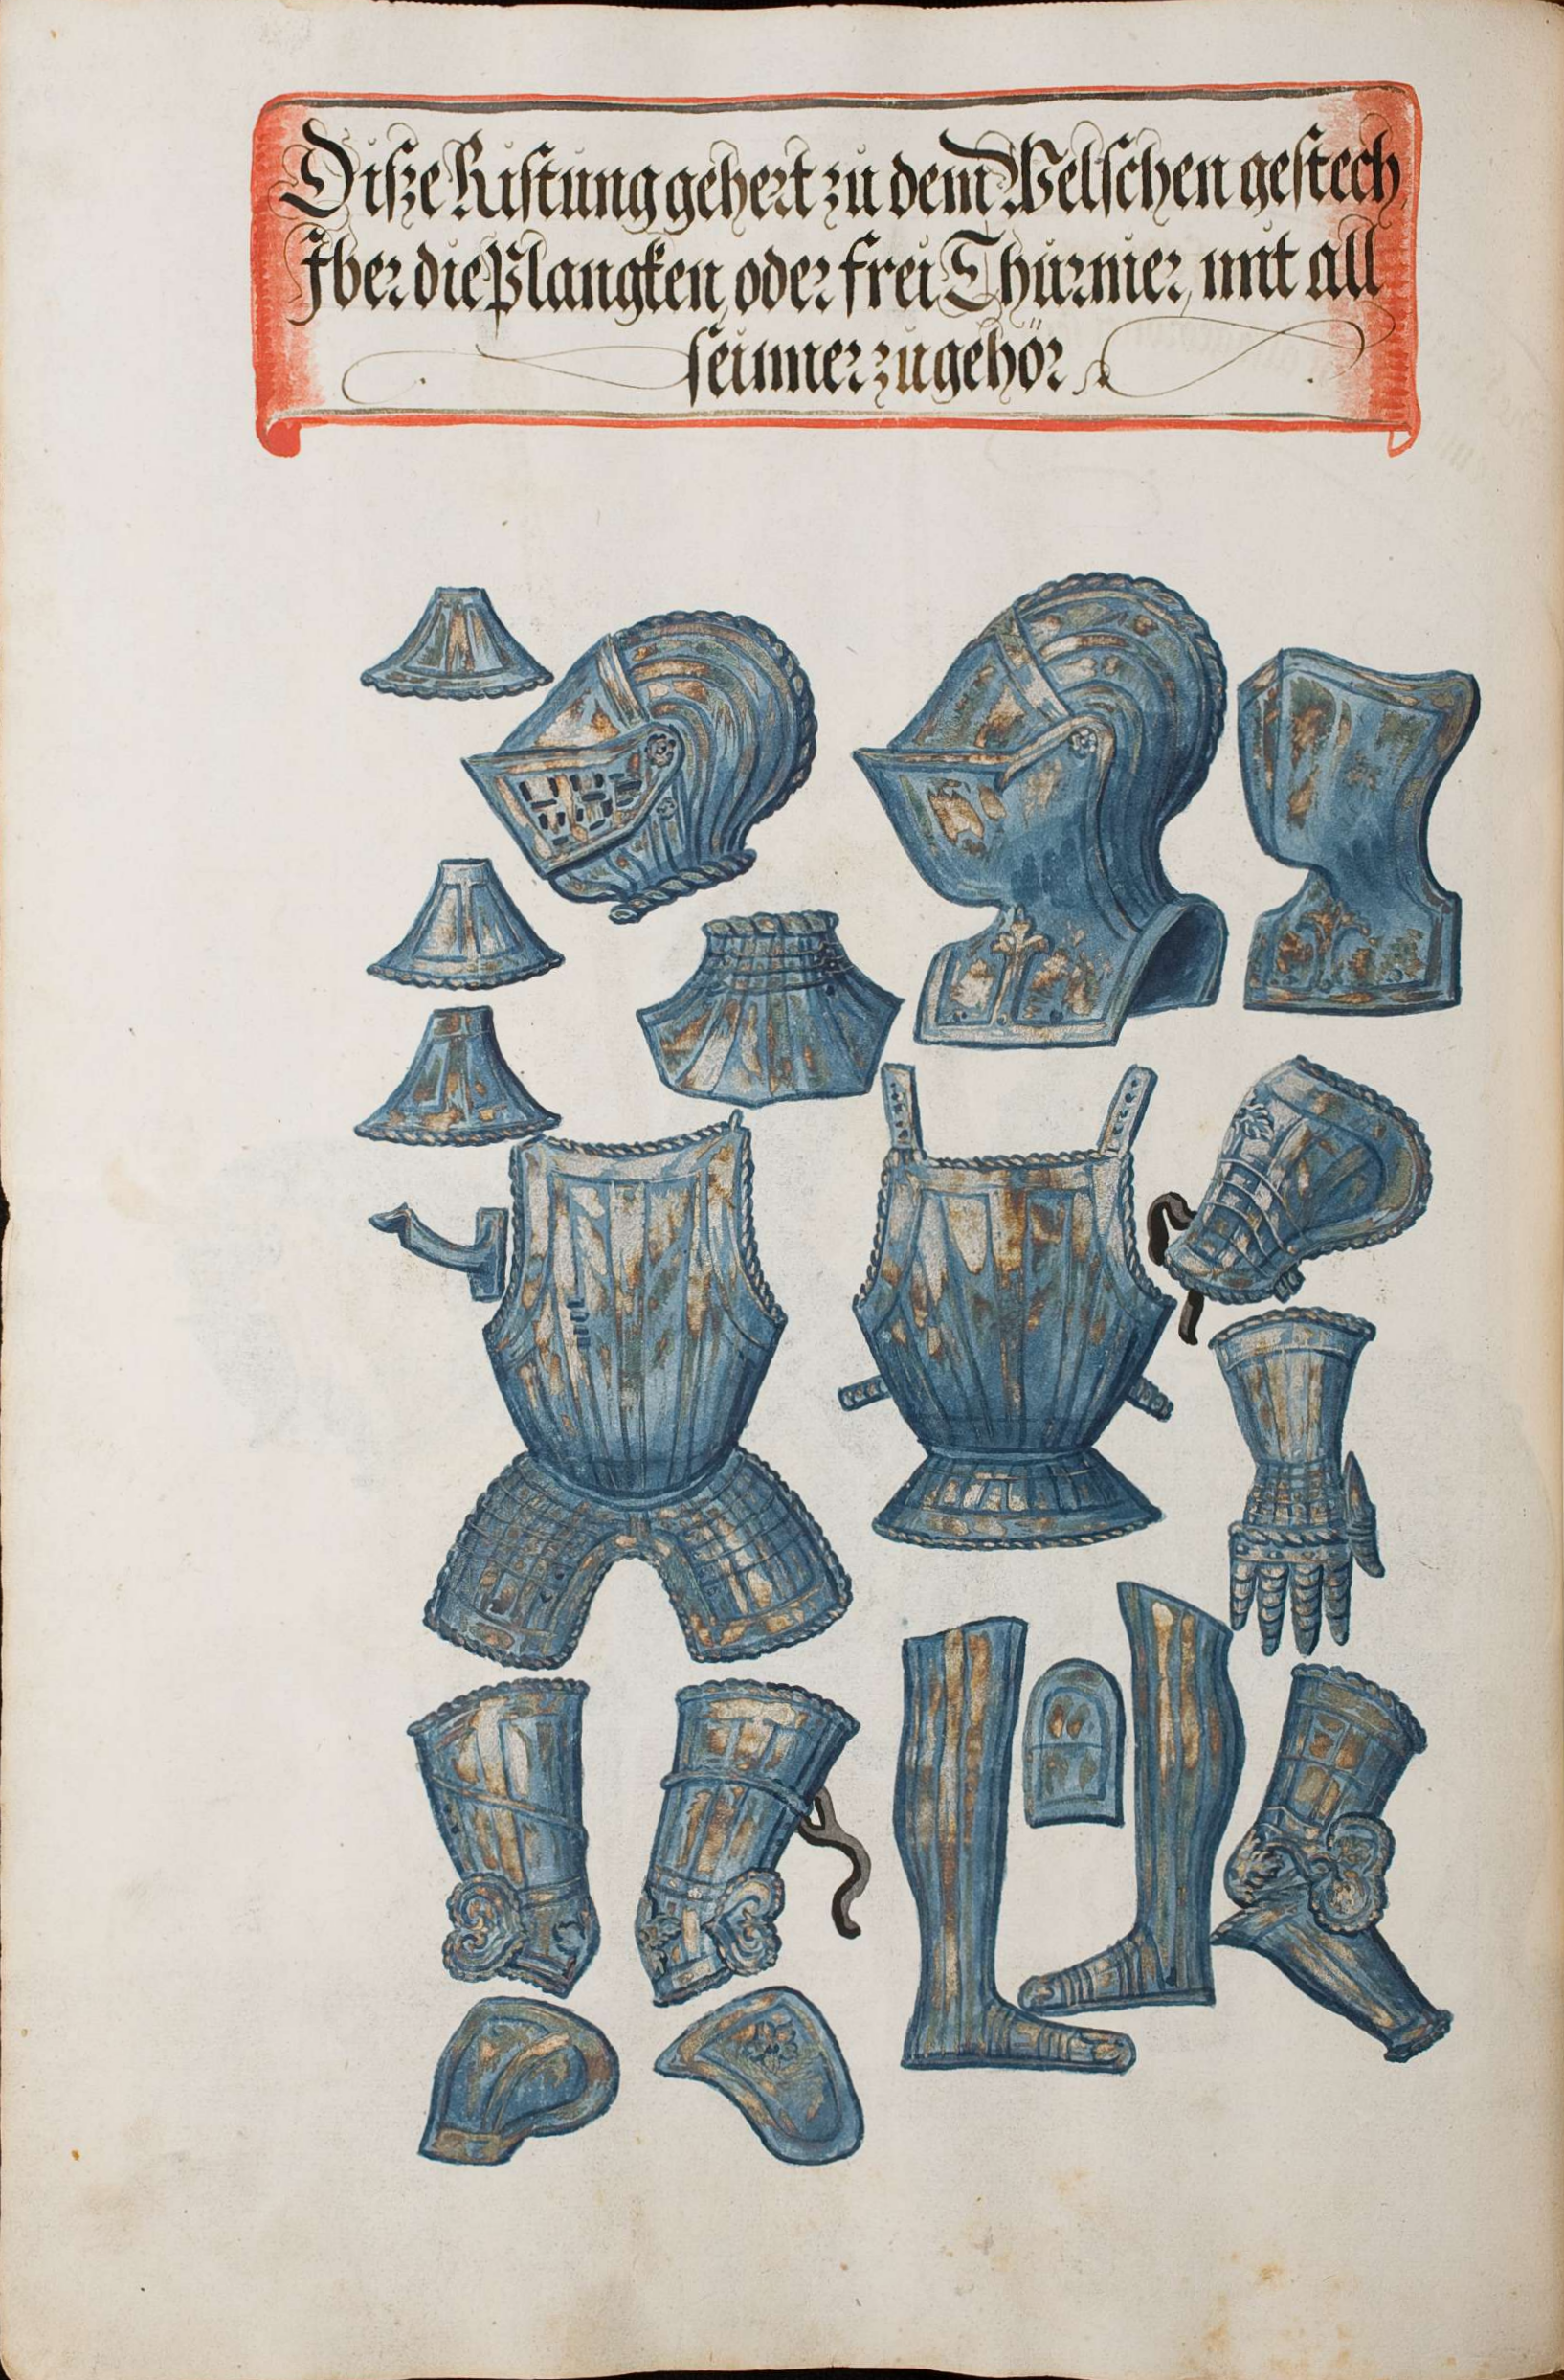 Disze Ristung gehert zu dem Welschen gestech,
Iber die Plangken, oder frei Thurnier, mit all
seinner zugehör